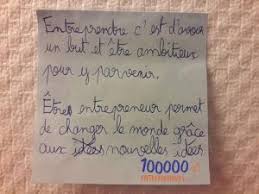 Entreprendre c'est d'avoir
un but et être ambitieux
pour y parvenir.
Être entrepreneur permet
de changer le monde grâce
aux idées nouvelles idées
100000